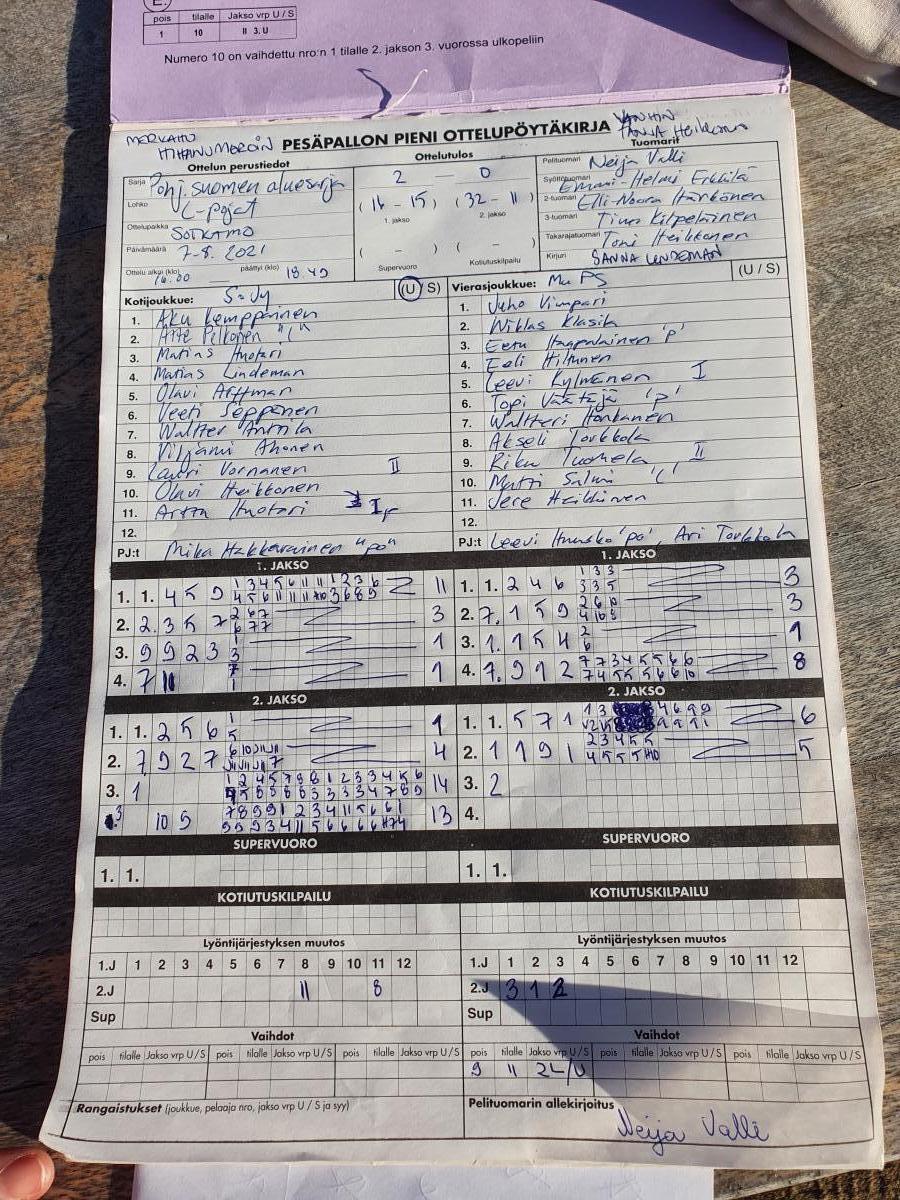 E.
pois tilalle Jakso vrp U / S
1 10 II 3. U
Numero 10 on vaihdettu nro:n 1 tilalle 2. jakson 3. vuorossa ulkopeliin
PESÄPALLON PIENI OTTELUPÖYTÄKIRJA
Ottelun perustiedot
Sarja Pohj. suomen aluesarja
Lohko C-pojat
Ottelupaikka SOTKAMO
Päivämäärä 7.8. 2021
Ottelu alkoi (klo) 16.00 päättyi (klo) 18.49
Ottelutulos
2 — 0
(16 - 15) (32 - 11)
1. jakso 2. jakso
( - ) ( - )
Supervuoro Kotiutuskilpailu
Tuomarit
Pelituomari Neija Valli
Syöttötuomari Emmi-Helmi Erkkilä
2-tuomari Elli-Noora Härkönen
3-tuomari Timo Kilpeläinen
Takarajatuomari Toni Heikkonen
Kirjuri SANNA LINDEMAN
Kotijoukkue: SoJy (U / S)
1. Aku Kemppainen
2. Atte Pelkonen "C"
3. Matias Huotari
4. Matias Lindeman
5. Olavi Arffman
6. Veeti Seppänen
7. Waltter Anttila
8. Viljami Ahonen
9. Lauri Vornanen II
10. Olavi Heikkonen
11. Arttu Huotari
12.
PJ:t Mika Hakkarainen "po"
Vierasjoukkue: MuPS (U / S)
1. Juho Vimpari
2. Niklas Klasila
3. Eetu Haapalainen 'P'
4. Eeli Hiltunen
5. Leevi Kylmänen I
6. Topi Väätäjä 'P'
7. Waltteri Honkanen
8. Akseli Torkkola
9. Riku Tuomela II
10. Matti Salmi 'C'
11. Jere Heikkinen
12.
PJ:t Leevi Huusko 'po', Ari Torkkola
1. JAKSO
1. 1. 4 5 9 11
2. 2. 3 5 7 3
3. 9 9 2 3 1
4. 7 11 1
1. JAKSO
1. 1. 2 4 6 3
2. 7. 1 5 9 3
3. 1. 1 5 4 1
4. 7. 9 1 2 8
2. JAKSO
1. 1. 2 5 6 1
2. 7 9 2 7 4
3. 1 14
3 10 9 13
2. JAKSO
1. 1. 5 7 1 6
2. 1 1 9 1 5
3. 2
4.
SUPERVUORO
1. 1.
SUPERVUORO
1. 1.
KOTIUTUSKILPAILU
KOTIUTUSKILPAILU
Lyöntijärjestyksen muutos
1.J 1 2 3 4 5 6 7 8 9 10 11 12
2.J 11 8
Sup
Lyöntijärjestyksen muutos
1.J 1 2 3 4 5 6 7 8 9 10 11 12
2.J 3 1 2
Sup
Vaihdot
pois tilalle Jakso vrp U / S pois tilalle Jakso vrp U / S pois tilalle Jakso vrp U / S
Vaihdot
pois tilalle Jakso vrp U / S pois tilalle Jakso vrp U / S pois tilalle Jakso vrp U / S
9 11 2L/U
Rangaistukset (joukkue, pelaaja nro, jakso vrp U / S ja syy)
Pelituomarin allekirjoitus
Neija Valli